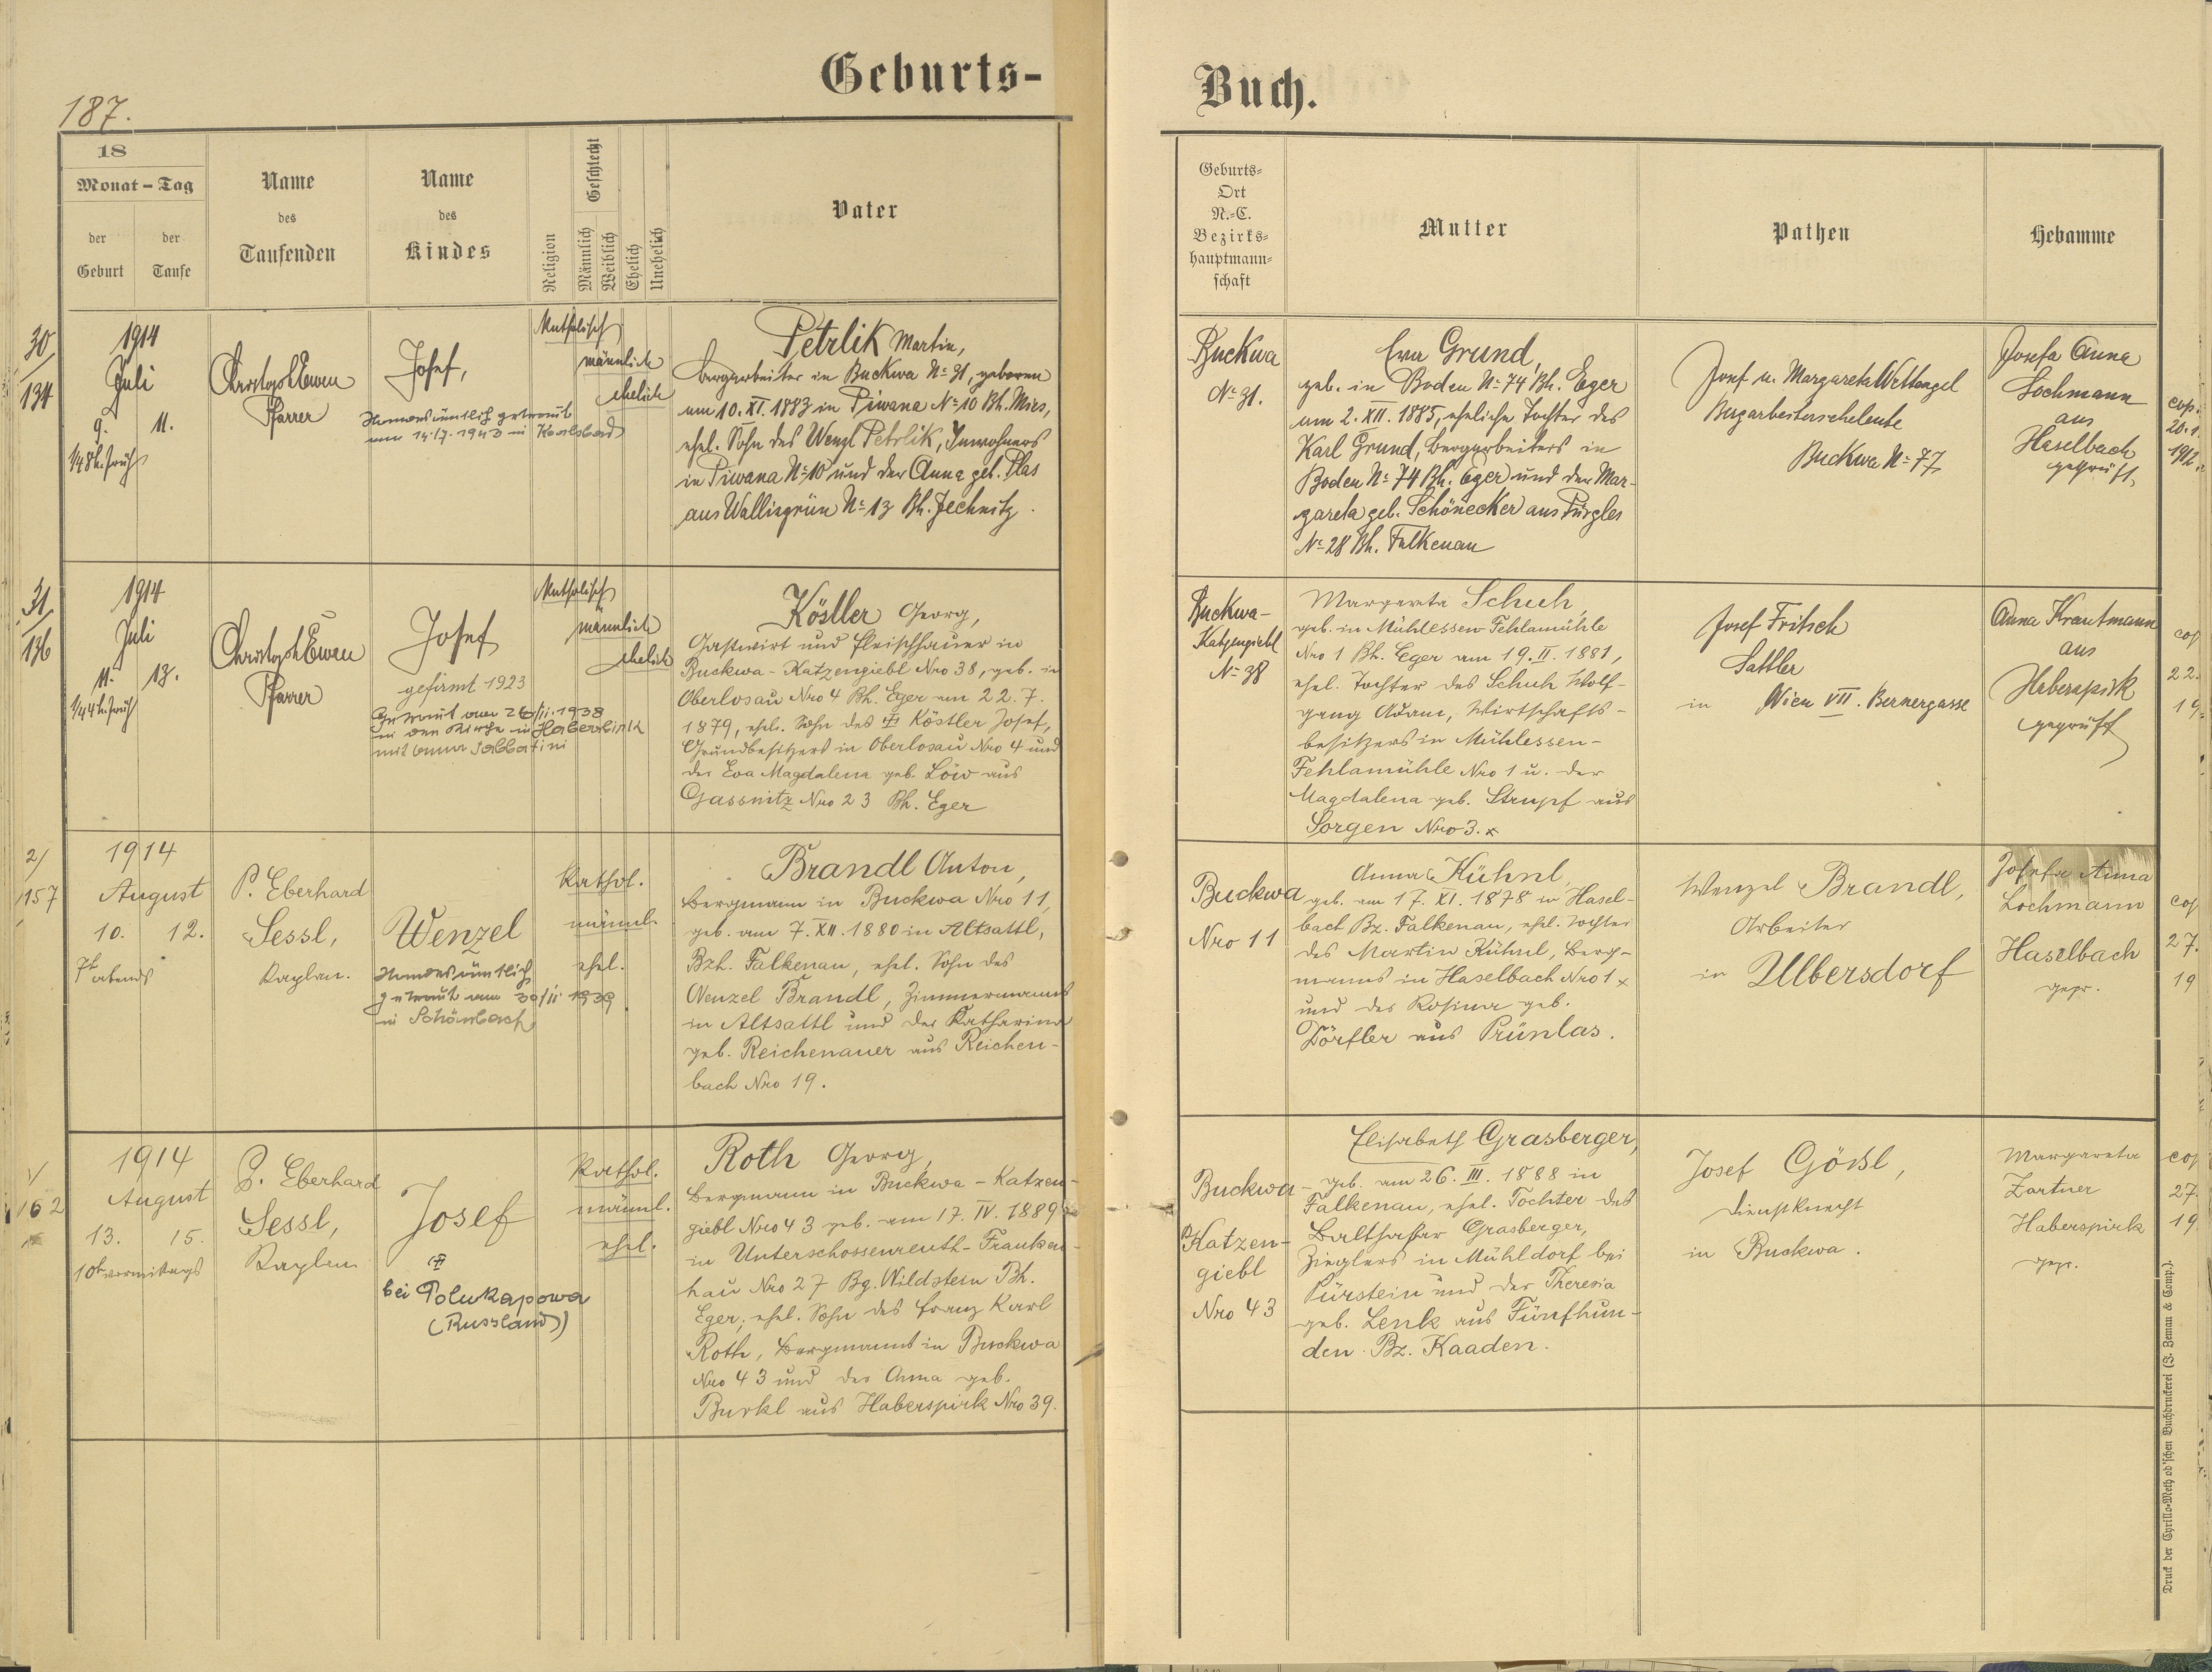 Geburts-
Buch.
187.
18
Monat – Tag
der Geburt
der Taufe
Name des Taufenden
Name des Kindes
Religion
Geschlecht
Männlich
Weiblich
Ehelich
Unehelich
Vater
Geburts-
Ort
N.-C.
Bezirks-
hauptmann-
schaft
Mutter
Pathen
Hebamme
30/
134
1914
Juli
9. 11.
1/48h. früh
Pfarrer
Josef,
Standesämtlich getraut
am 14./7. 1943 in Karlsbad
Katholisch
männlich
ehelich
Petrlik Martin,
Bergarbeiter in Buckwa No 31, geboren
am 10. XI. 1883 in Piwana No 10 Bh. Mies,
ehel. Sohn des Wenzl Petrlik, Inwohners
in Piwana No 10 und der Anna geb. Plas
aus Wallisgrün No 13 Bh. Jechnitz.
Buckwa
No 31.
Eva Grund,
geb. in Boden No 74 Bh. Eger
am 2. XII. 1885, eheliche Tochter des
Karl Grund, Bergarbeiters in
Boden No 74 Bh. Eger und der Mar-
gareta geb. Schönecker aus Pürgles
No 28 Bh. Falkenau
Josef u. Margareta Wettengel
Bergarbeiterseheleute
Buckwa No 77
Josefa Anna
Lochmann
aus
Haselbach
geprüft.
cop.
20.1.
1912
31/
136
1914
Juli
11. 13.
1/44h. früh
Pfarrer
Josef
gefirmt 1923
Getraut am 26/II. 1938
in der Kirche in Haberspirk
mit Anna Sabbatini
Katholisch
männlich
ehelich
Köstler Georg,
Gastwirt und Fleischhauer in
Buckwa - Katzengiebl Nro 38, geb. in
Oberlosau Nro 4 Bh. Eger am 22. 7.
1879, ehel. Sohn des Köstler Josef,
Grundbesitzers in Oberlosau Nro 4 und
der Eva Magdalena geb. Löw aus
Gassnitz Nro 23 Bh. Eger
Buckwa-
Katzengiebl
No 38
Margareta Schuh,
geb. in Mühlessen-Fehlamühle
Nro 1 Bh. Eger am 19. II. 1881,
ehel. Tochter des Schuh Wolf-
gang Adam, Wirtschafts-
besitzers in Mühlessen-
Fehlamühle Nro 1 u. der
Magdalena geb. Strupf aus
Sorgen Nro 3.
Josef Fritsch
Sattler
in Wien VII. Bernergasse
Anna Krautmann
aus
Haberspirk
geprüft
cop
22.
19
2/
157
1914
August
10. 12.
7h abends
P. Eberhard
Sessl,
Kaplan.
Wenzel
Standesämtlich
getraut am 30/II 1939
in Schönbach
Kathol.
männl.
ehel.
Brandl Anton,
Bergmann in Buckwa Nro 11,
geb. am 7. XII. 1880 in Altsattl,
Bzh. Falkenau, ehel. Sohn des
Wenzel Brandl, Zimmermanns
in Altsattl und der Katharina
geb. Reichenauer aus Reichen-
bach Nro 19.
Buckwa
Nro 11
Anna Kühnl,
geb. am 17. XI. 1878 in Hasel-
bach Bz. Falkenau, ehel. Tochter
des Martin Kühnl, Berg-
manns in Haselbach Nro 1
und der Rosina geb.
Dörfler aus Prünlas.
Wenzel Brandl,
Arbeiter
in Ulbersdorf
Josefa Anna
Lochmann
Haselbach
gepr.
cop
27.
19
162
1914
August
13. 15.
10h vormittags
P. Eberhard
Sessl,
Kaplan
Josef
bei Polukapowa
(Russland)
Kathol.
männl.
ehel.
Roth Georg,
Bergmann in Buckwa - Katzen-
giebl Nro 43 geb. am 17. IV. 1889
in Unterschossenreuth - Franken-
hau Nro 27 Bg. Wildstein Bh.
Eger, ehel. Sohn des Franz Karl
Roth, Bergmanns in Buckwa
Nro 43 und der Anna geb.
Burkl aus Haberspirk Nro 39.
Buckwa -
Katzen-
giebl
Nro 43
Elisabeth Grasberger,
geb. am 26. III. 1888 in
Falkenau, ehel. Tochter des
Balthasar Grasberger,
Zieglers in Mühldorf bei
Pürstein und der Theresia
geb. Lenk aus Fünfhun-
den Bz. Kaaden.
Josef Gößl,
Dienstknecht
in Buckwa.
Margareta
Zartner
Haberspirk
gepr.
cop
27.
19
Druck der Cyrillo-Method'schen Buchdruckerei (J. Zeman & Comp.).